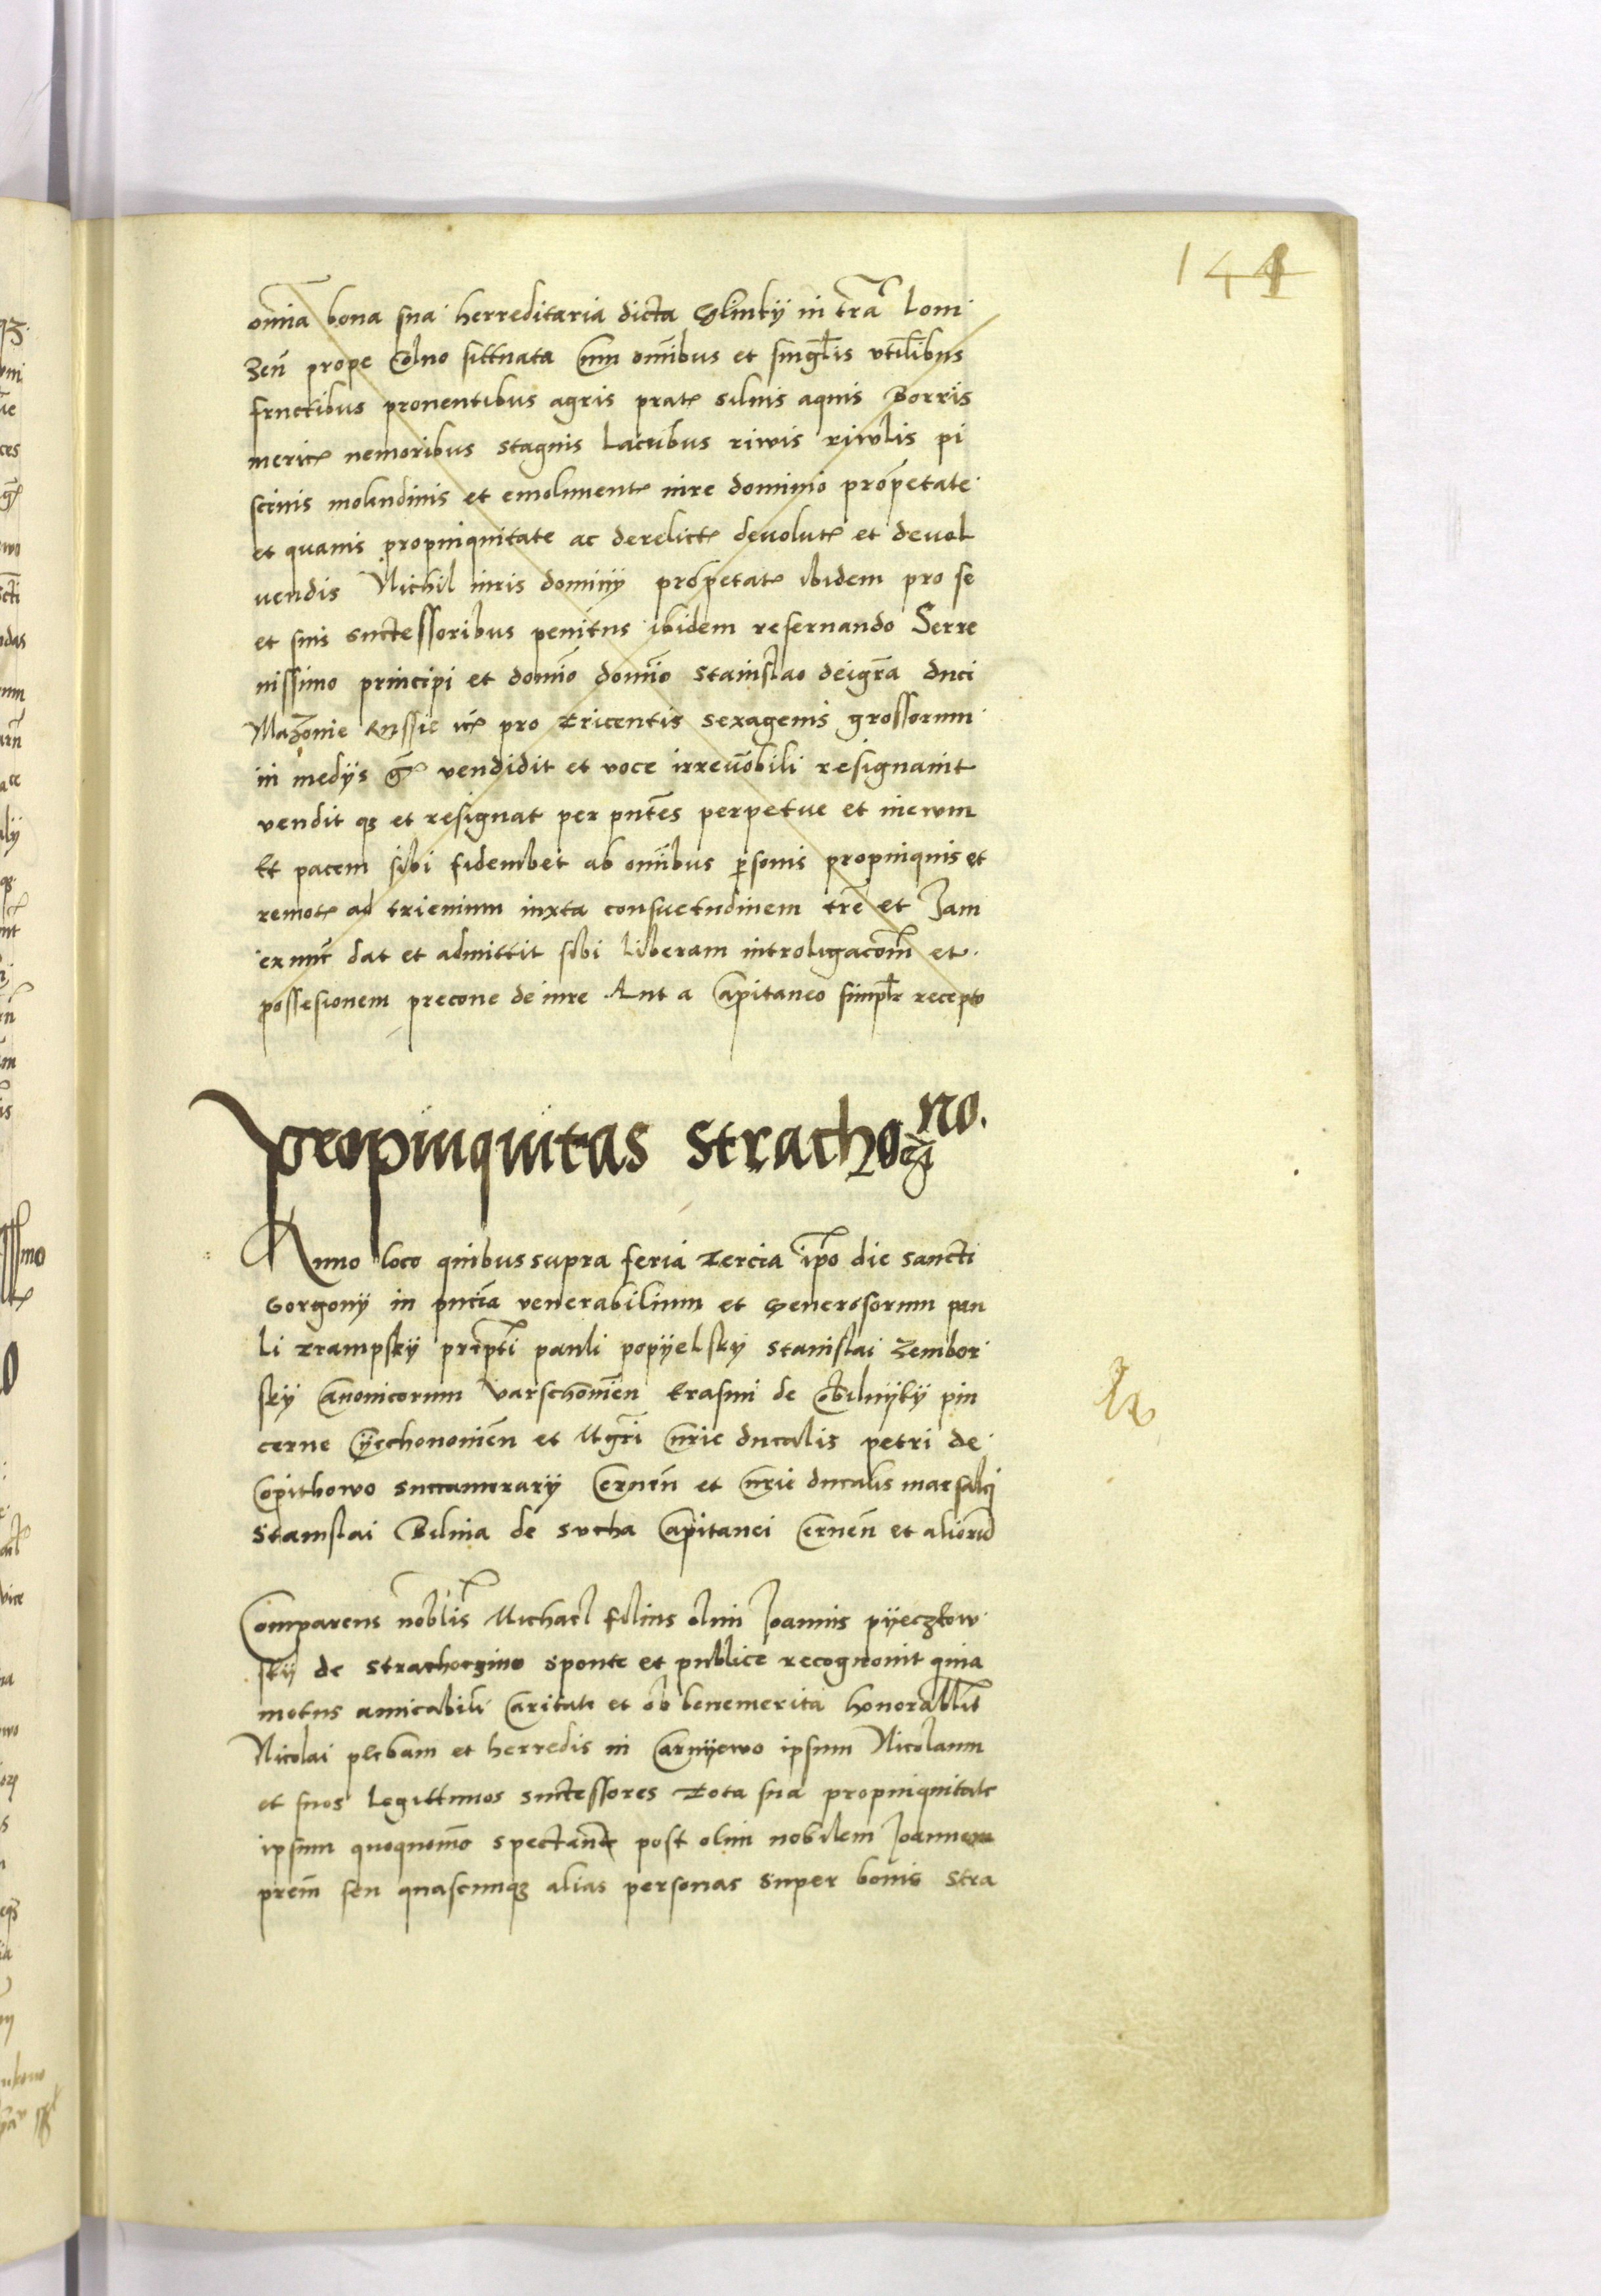 144
om̄ia bona sua herreditaria dicta Glinky in tra᷑ Lom
zen̄ prope Colno sittuata cum om̄ibus et singl̄is vtilibus
fructibus prouentibus agris prat᷑ siluis aquis Borris
meric᷑ nemoribus stagnis Lacubus riwis riwlis pi
scinis molendinis et emolument᷑ iure dominio prop̄etate
et quauis propinquitate ac derelict᷑ deuolut᷑ et devol
uendis Nichil iuris dominij prop̄etat᷑ ibidem pro se
et suis suctessoribus penitus ibidem reseruando Serre
nissimo principi et domīo domīo Stanislao deigr̄a duci
Mazouie Russie ꝛc᷑ pro Tricentis sexagenis grossorum
in medijs g᷑ vendidit et voce irreuo̅bili resignauit
vendit qꝫ et resignat per pn̄tes perpetue et ineuum
Et pacem sibi fidembet ab om̄ibus p̱sonis propinquis et
remot᷑ ad trienium iuxta consuetudinem tr̄e et Iam
ex nunc dat et admittit sibi liberam introligacōm et
possesionem precone de iure Aut a Capitaneo simpl̄r recepto
Propinquitas Strachoczino.
Anno loco quibus supra feria Tercia ip̄o die Sancti
Gorgonij in pn̄cia venerabilium et Generosorum pau
li Trampsky prep̄ti pauli popyelsky Stanislai Zembor
sky Canonicorum Varschouien̄ Erasmi de Obilnyky pin
cerne Cyechonouien̄ et Mgr̄i Curie ducalis petri de
Copithowo succamerarij Cernen̄ et Curie ducalis marsalci
Stanislai Bilina de Sucha Capitanei Cernen̄ et aliorū
Comparens nobl̄is Michael filius olim Joannis pyeczkow
sky de Strachoczino sponte et publice recognouit quia
motus amicabili Caritate et ob benemerita honorabl̄is
Nicolai plebani et herredis in Carnyewo ipsum Nicolaum
et suos Legittimos suctessores Tota sua propinquitate
ipsum quoquom̄o spectante post olim nobilem Joannem
prem̄ seu quascunqꝫ alias personas super bonis Stra